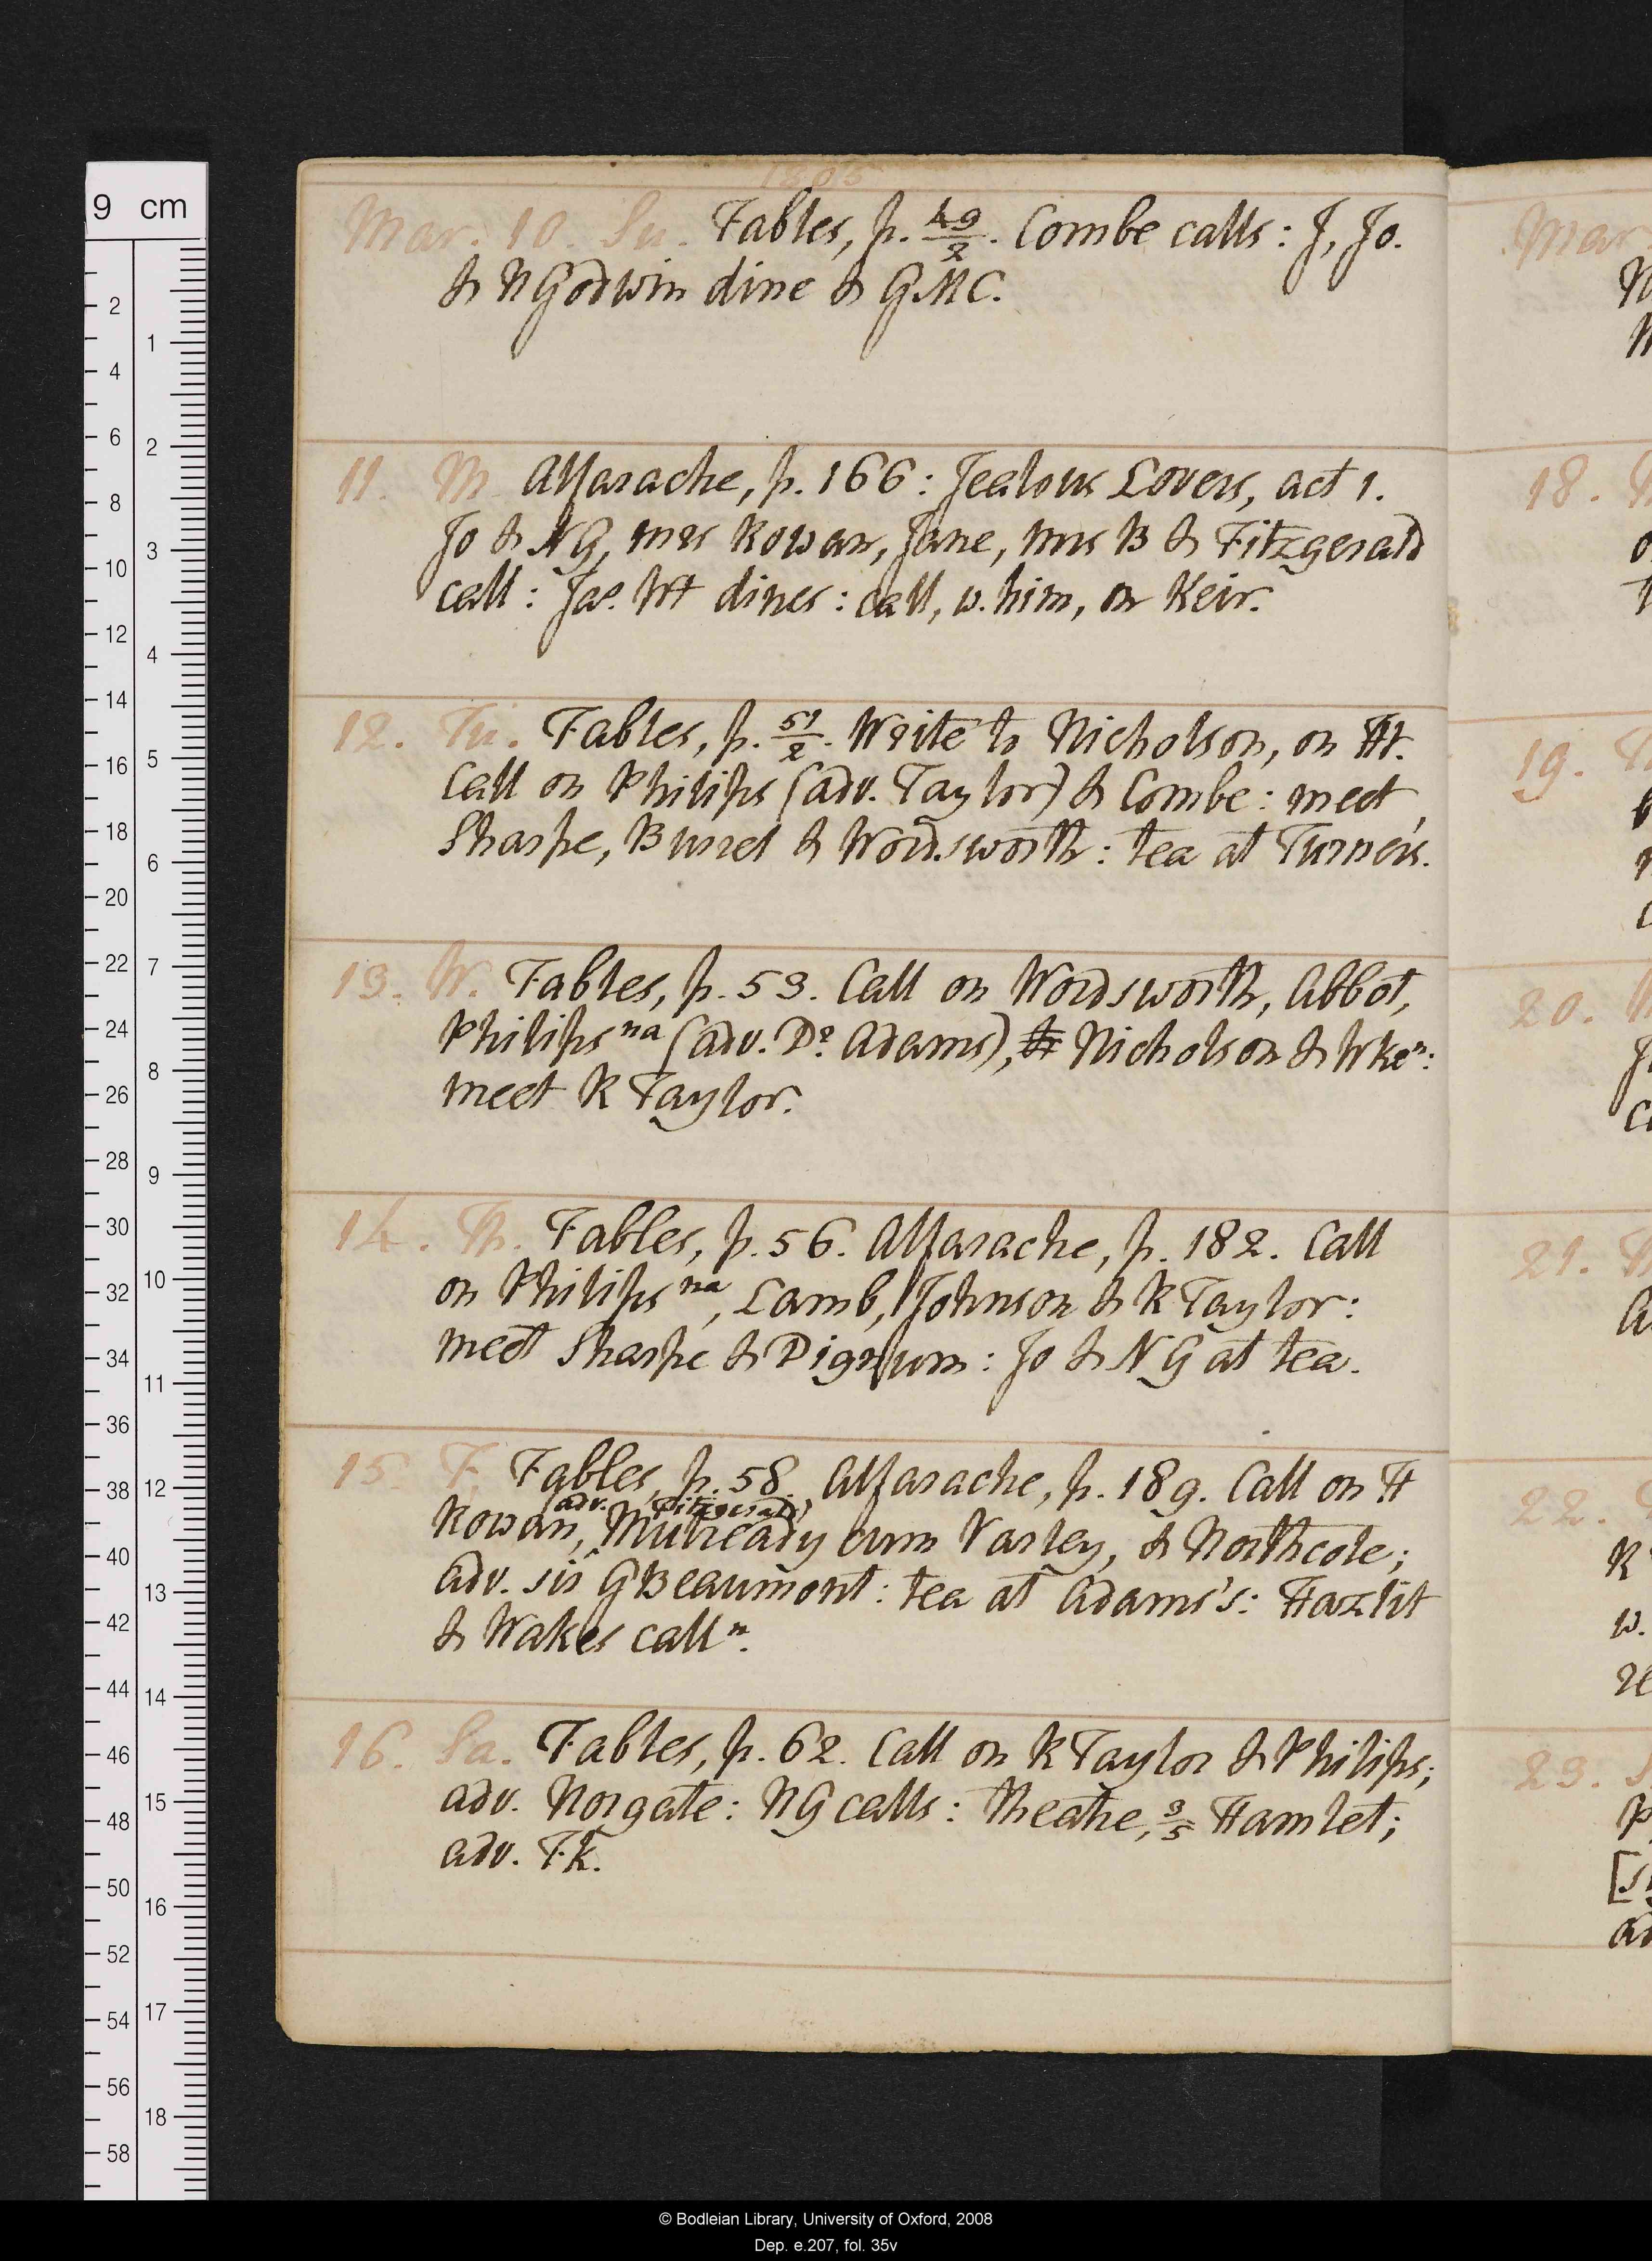 1805
Mar. 10. Su. Fables, p. 49/2. Combe calls: J, Jo.
& N Godwin dine & GMC.
11. M Alfarache, p. 166: Jealous Lovers, act 1.
Jo & NG, mrs Rowan, Jane, mrs B & Fitzgerald
call: Jas. Wt dines: call, w. him, on Keir.
12. Tu. Fables, p. 51/2. Write to Nicholson, on Ht.
Call on Philips (adv. Taylor) & Combe: meet
Sharpe, Burrel & Wordsworth: tea at Turner's.
13. W. Fables, p. 53. Call on Wordsworth, Abbot,
Philips na (adv. Dr. Adams), & Nicholson & Wken:
meet R Taylor.
14. Th. Fables, p. 56. Alfarache, p. 182. Call
on Philips na, Lamb, Johnson & R Taylor:
meet Sharpe & Dignum: Jo & NG at tea.
15. F. Fables, p. 58. Alfarache, p. 189. Call on H
(adv. Fitzgerald)
Rowan, Mulready cum Varley, & Northcote;
adv. sir G Beaumont: tea at Adams's: Hazlit
& Wakes calln.
16. Sa. Fables, p. 62. Call on R Taylor & Philips;
adv. Norgate: NG calls: theatre, 3/5 Hamlet;
adv. F.K.
Mar
18.
19.
20.
21.
22.
23.
9 cm
2 4 6 8 10 12 14 16 18 20 22 24 26 28 30 32 34 36 38 40 42 44 46 48 50 52 54 56 58
1 2 3 4 5 6 7 8 9 10 11 12 13 14 15 16 17 18
© Bodleian Library, University of Oxford, 2008
Dep. e.207, fol. 35v